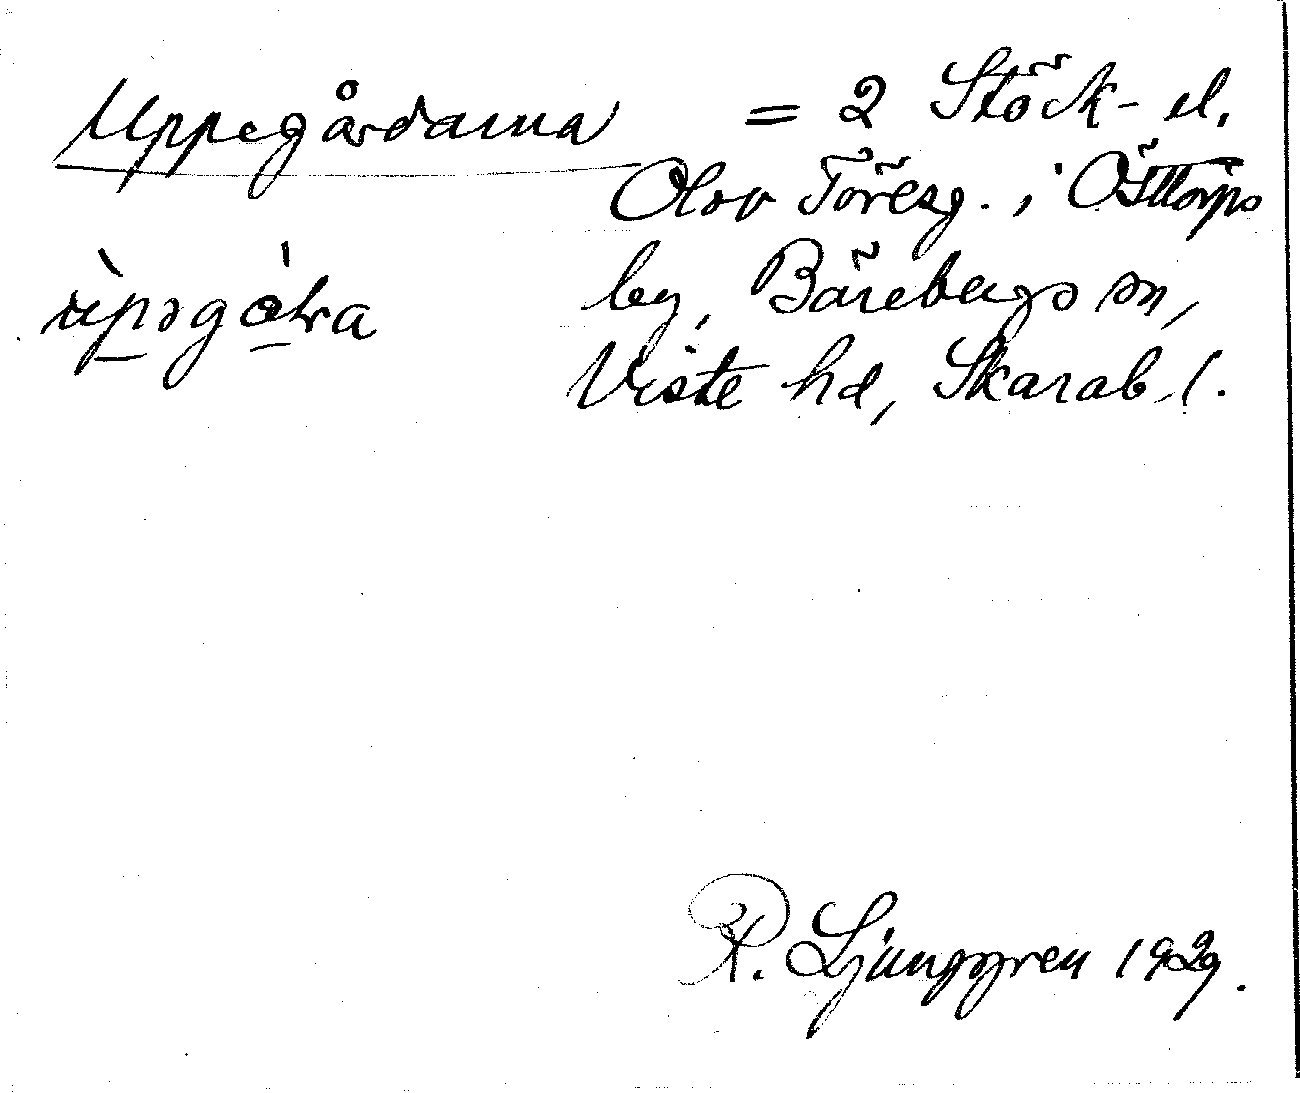 Uppegårdarna = 2 Stöck- el.
Olov Töresg. i Östtorps
by, Bärebergs sn,
Viste hd, Skarab. l.
ùpəgòɽa
R. Ljunggren 1929.